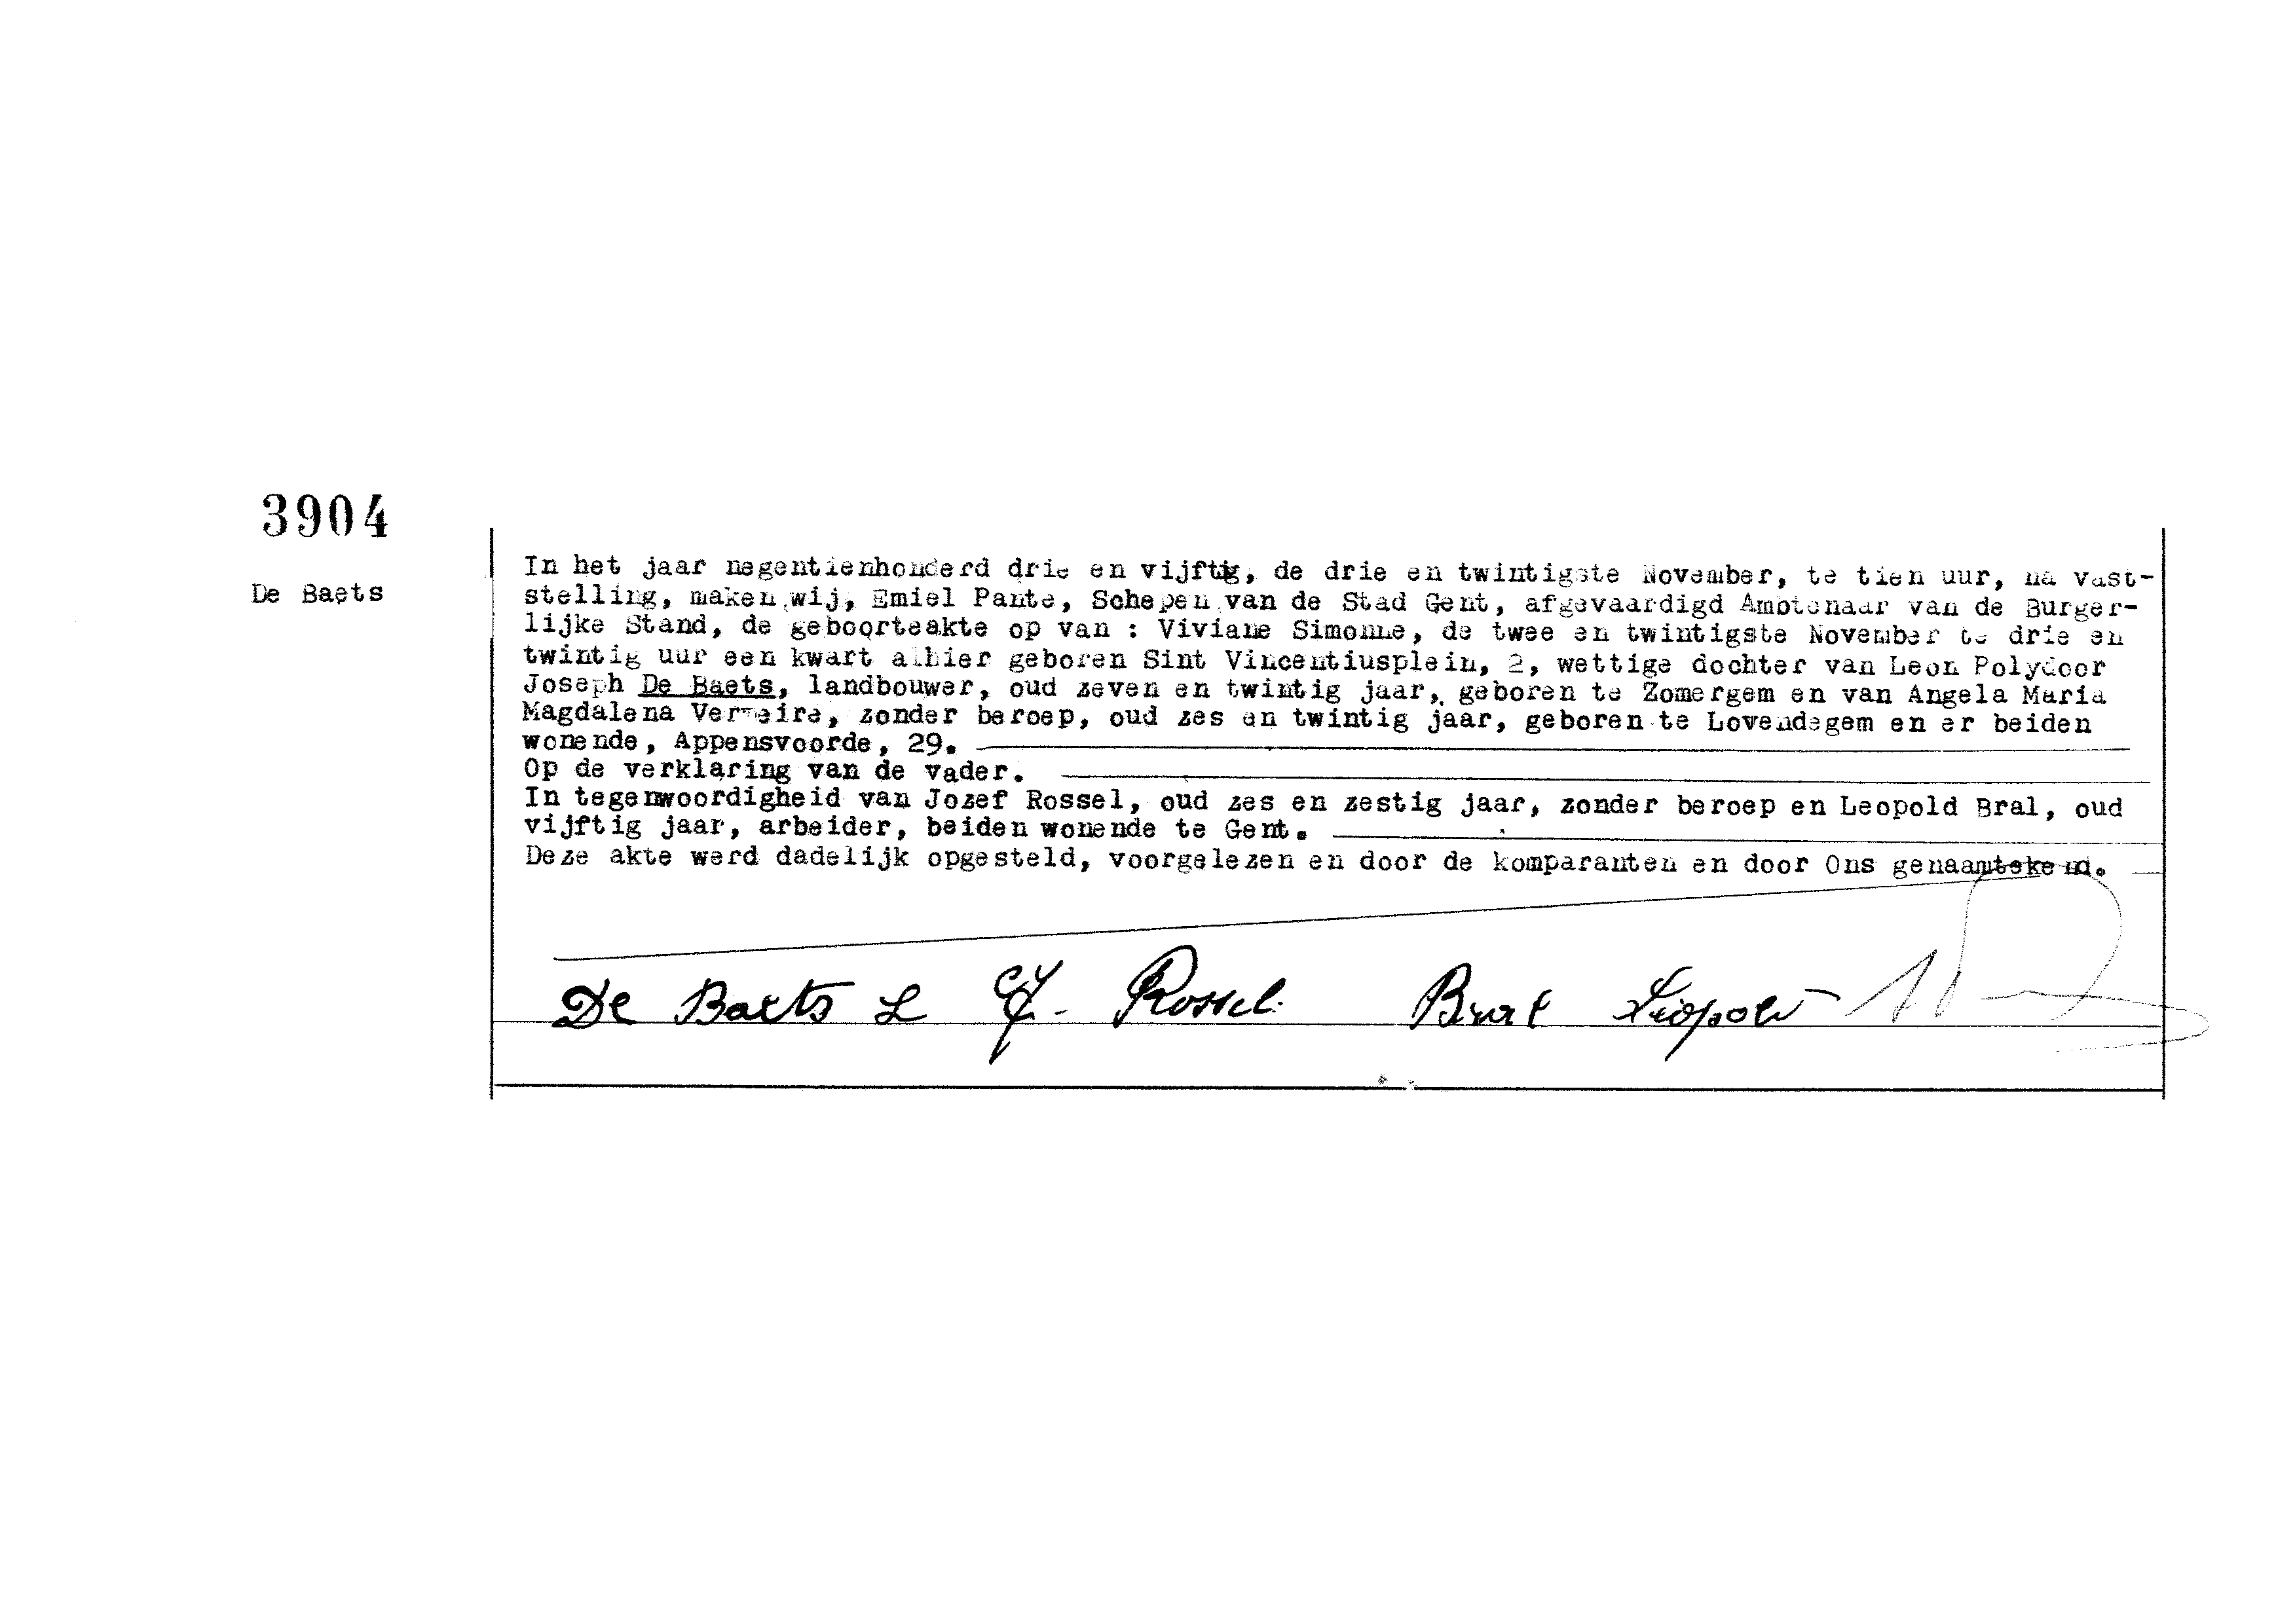 3904
De Baets
In het jaar negentienhonderd drie en vijftig, de drie en twintigste November, te tien uur, na vast-
stelling, maken wij, Emiel Pante, Schepen van de Stad Gent, afgevaardigd Ambtenaar van de Burger-
lijke Stand, de geboorteakte op van : Viviane Simonne, de twee en twintigste November te drie en
twintig uur een kwart alhier geboren Sint Vincentiusplein, 2, wettige dochter van Leon Polydoor
Joseph De Baets, landbouwer, oud zeven en twintig jaar, geboren te Zomergem en van Angela Maria
Magdalena, zonder beroep, oud zes en twintig jaar, geboren te Lovendegem en er beiden
wonende, Appensvoorde, 29.
Op de verklaring van de vader.
In tegenwoordigheid van Jozef Rossel, oud zes en zestig jaar, zonder beroep en Leopold Bral, oud
vijftig jaar, arbeider, beiden wonende te Gent.
Deze akte werd dadelijk opgesteld, voorgelezen en door de komparanten en door Ons genaamtekend.
De Baets L J. Rossel. Bral Leopold